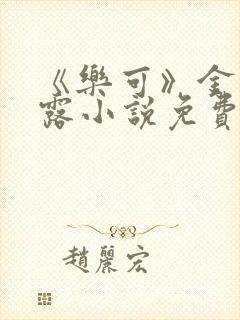 《樂可》金
露小說免費
趙麗宏